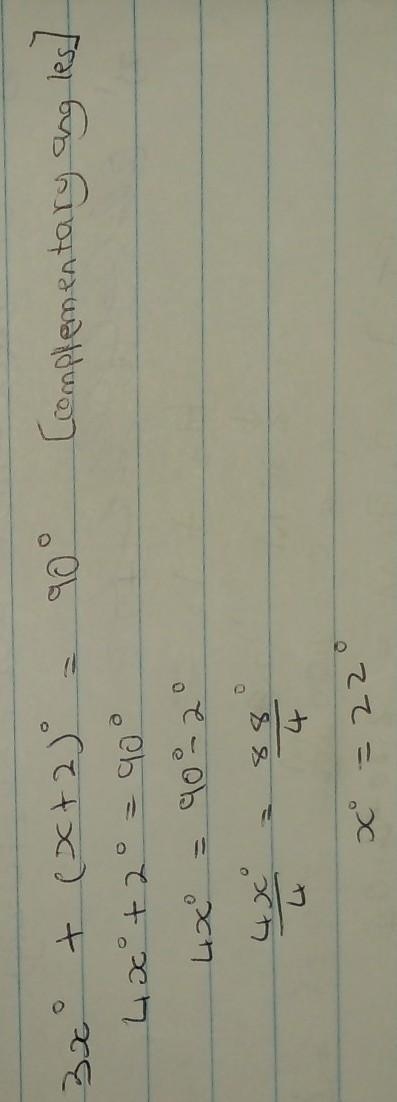 3x° + (x+2)° = 90° [complementary angles]
4x° + 2° = 90°
4x° = 90° - 2°
4x°/4 = 88°/4
x° = 22°